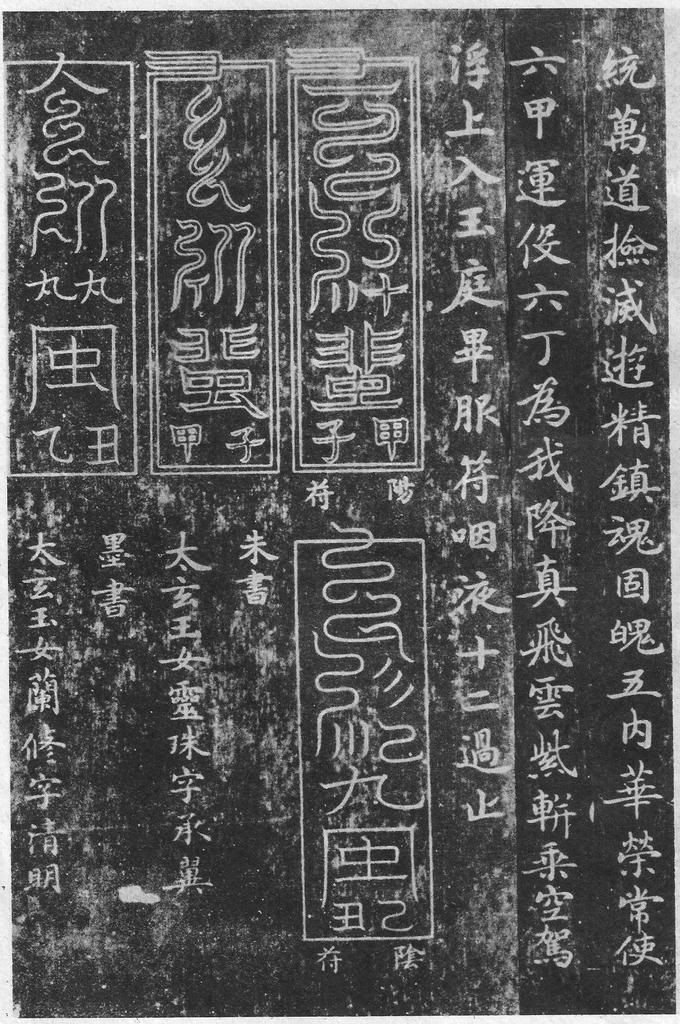 統萬道撿滅遊精鎮魂固魄五内華榮常使
六甲運伇六丁為我降真飛雲紫軿乘空駕
浮上入玉庭畢服符咽液十二過止
甲子
陽符
乙丑
陰符
甲子
朱書
太玄玉女靈珠字承翼
丑乙
墨書
太玄玉女蘭修字清明